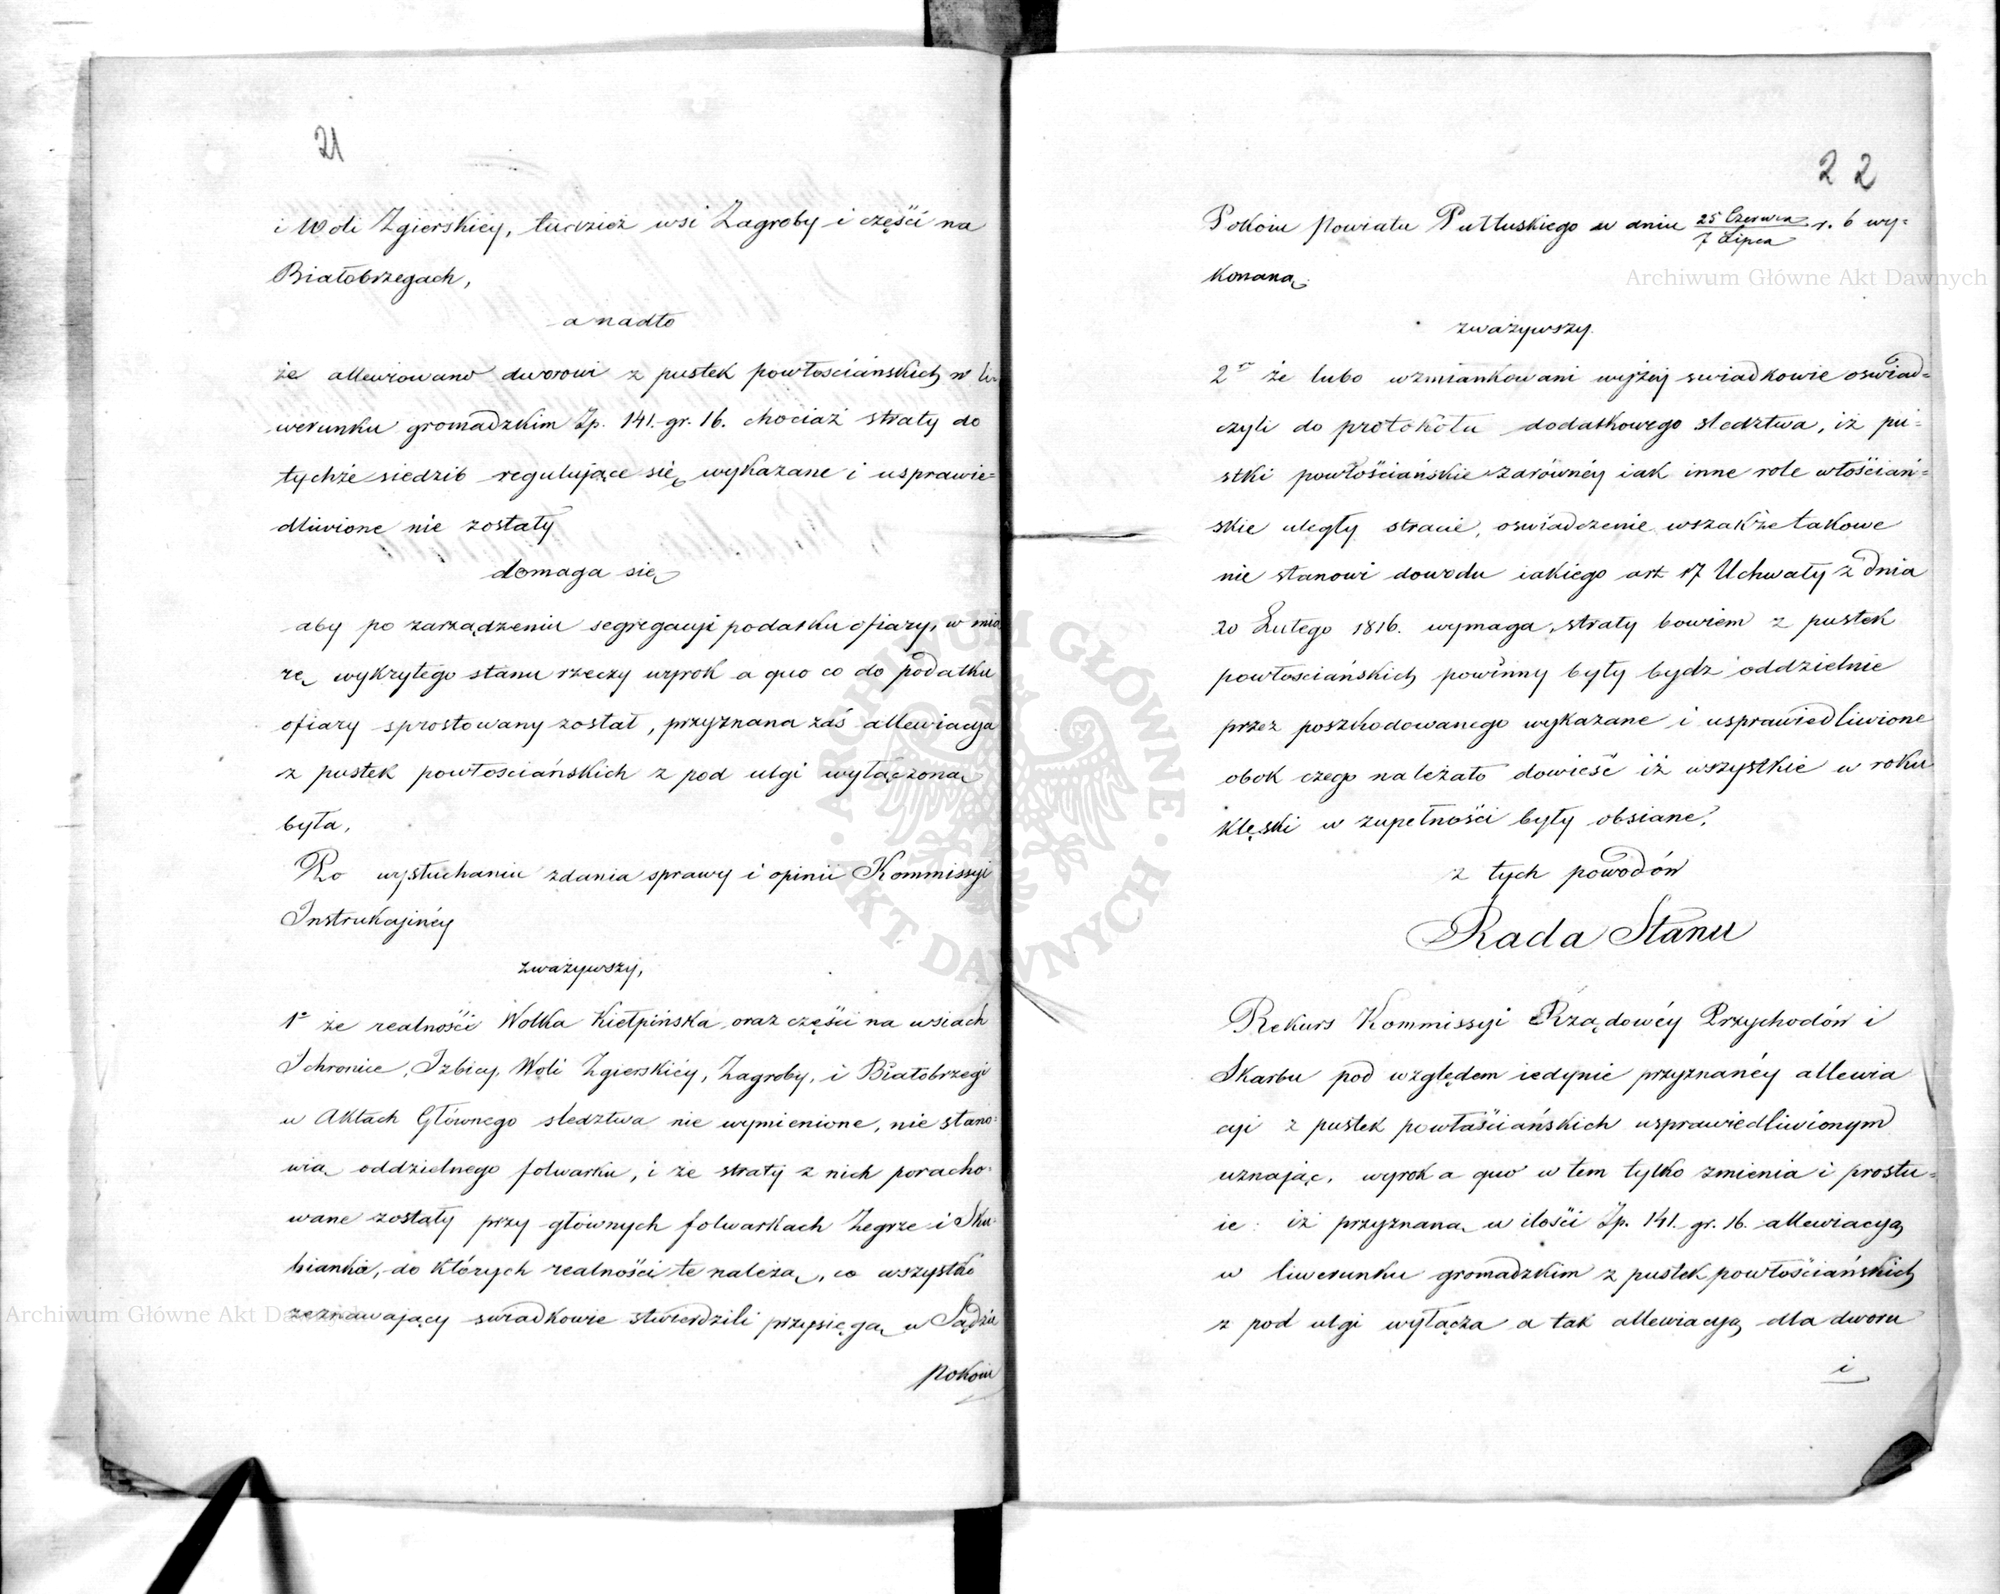 21
i Woli Zgierskiéy, tudzież wsi Zagroby i części na
Białobrzegach,
a nadto
że allewiowano dworowi z pustek powłościańskich w li-
werunku gromadzkim Zp. 141. gr. 16. chociaż straty do
tychże siedzib regulujące się, wykazane i usprawie=
dliwione nie zostały
domaga się
aby po zarządzeniu segregacyi podatku ofiary, w mia
rę wykrytego stanu rzeczy wyrok a quo co do podatku
ofiary sprostowany został, przyznana zaś allewiacya
z pustek powłosciańskich z pod ulgi wyłączoną
była,
Po wysłuchaniu zdania sprawy i opinii Kommissyi
Instrukcyinéy
zważywszy,
1º że realności Wolka Kiełpińska, oraz części na wsiach
Ichronice, Izbicy, Woli Zgierskiéy, Zagroby, i Białobrzegi
w Aktach Głównego sledztwa nie wymienione, nie stano=
wią oddzielnego folwarku, i że straty z nich poracho=
wane zostały przy głównych folwarkach Zegrze i Sku=
bianka, do których realności te należą, co wszystko
zeznawający swiadkowie stwierdzili przysięgą w Sądzie
Pokoiu
22
Pokoiu Powiatu Pułtuskiego w dniu 25 Czerwca / 7 Lipca r. b wy=
konaną.
zważywszy.
2º że lubo wzmiankowani wyżéy swiadkowie oswiad=
czyli do protokółu dodatkowego sledztwa, iż pu=
stki powłościańskie zarównéy iak inne role włościań=
skie uległy stracie, oswiadczenie wszakże takowe
nie stanowi dowodu iakiego art 17 Uchwały z dnia
20 Lutego 1816. wymaga, straty bowiem z pustek
powłosciańskich powinny były bydź oddzielnie
przez poszkodowanego wykazane i usprawiedliwione
obok czego należało dowieść iż wszystkie w roku
klęski w zupełności były obsiane,
z tych powodów
Rada Stanu
Rekurs Kommissyi Rządowéy Przychodów i
Skarbu pod względem iedynie przyznanéy allewia
cyi z pustek powłaściańskich usprawiedliwionym
uznając, wyrok a quo w tem tylko zmienia i prostu=
ie: iż przyznaną w ilości Zp. 141. gr. 16. allewiacyą
w liwerunku gromadzkim z pustek powłościańskich
z pod ulgi wyłącza a tak allewiacyą dla dworu
i
Archiwum Główne Akt Dawnych
Archiwum Główne Akt Dawnych
ARCHIWUM GŁÓWNE · AKT DAWNYCH ·